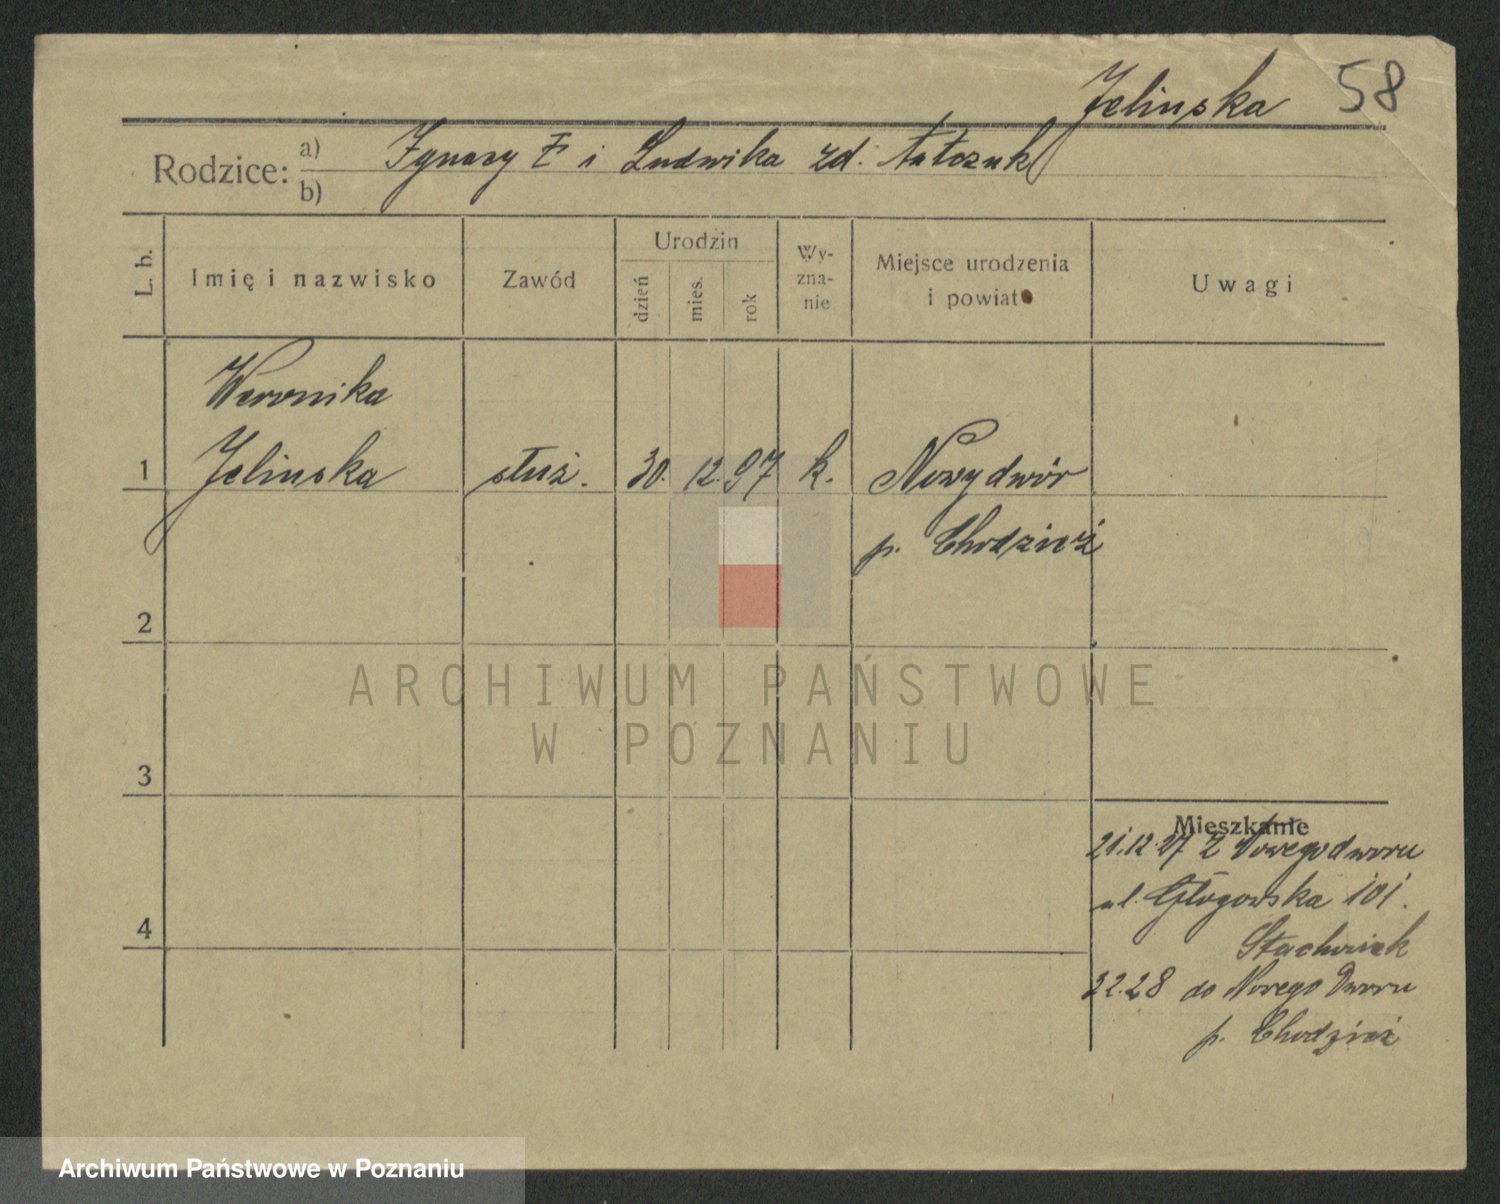 Jelinska 58
Rodzice: a) Ignacy i Ludwika zd.
b)
L. b.
Imię i nazwisko
Zawód
Urodzin
dzień
mies.
rok
Wy-
zna-
nie
Miejsce urodzenia
i powiat
Uwagi
Weronika
1 Jelinska służ. 30. 12. 97 k. Nowydwór
p. Chodzież
2
3
4
ARCHIWUM PAŃSTWOWE
W POZNANIU
Mieszkanie
21.12.27 z Nowegodworu
ul. Głogowska 101.
Stachowiak
2.2.28 do Nowego Dworu
p. Chodzież
Archiwum Państwowe w Poznaniu